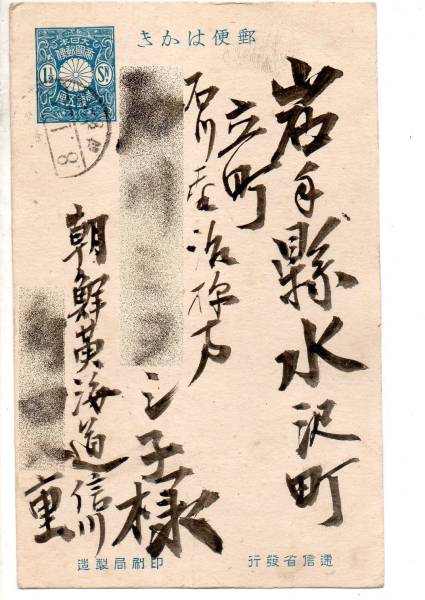 郵便はかき
大日本
帝國郵便
1½ Sn
壹錢五厘
岩手縣水沢町
立町
石川
治様方
シ子様
朝鮮黄海道信川
重
逓信省發行
印刷局製造